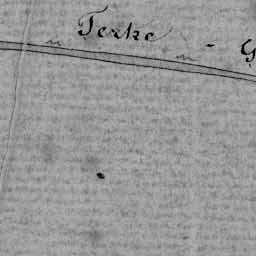 Terke - G